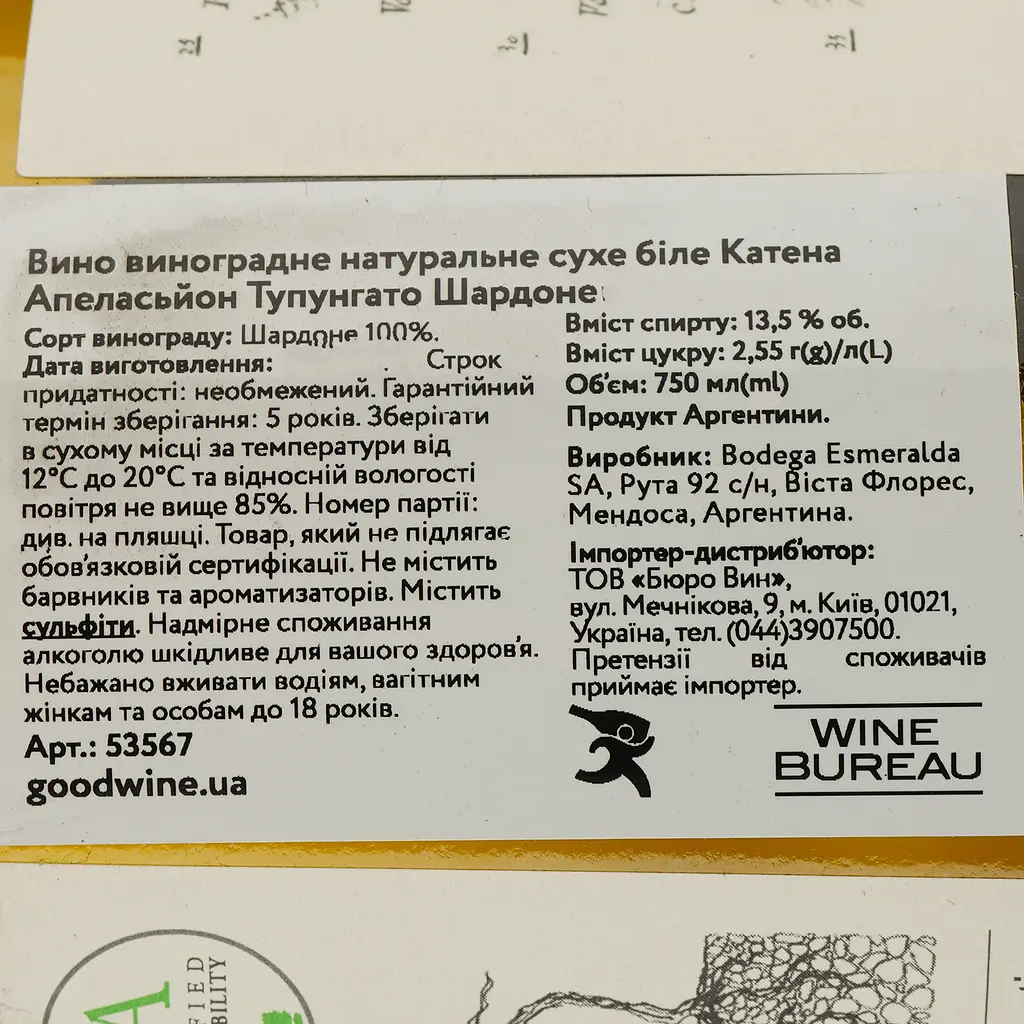 25
30
35
Вино виноградне натуральне сухе біле Катена
Апеласьйон Тупунгато Шардоне
Сорт винограду: Шардоне 100%.
Дата виготовлення: Строк
придатності: необмежений. Гарантійний
термін зберігання: 5 років. Зберігати
в сухому місці за температури від
12°C до 20°C та відносній вологості
повітря не вище 85%. Номер партії:
див. на пляшці. Товар, який не підлягає
обов'язковій сертифікації. Не містить
барвників та ароматизаторів. Містить
сульфіти. Надмірне споживання
алкоголю шкідливе для вашого здоров'я.
Небажано вживати водіям, вагітним
жінкам та особам до 18 років.
Арт.: 53567
goodwine.ua
Вміст спирту: 13,5 % об.
Вміст цукру: 2,55 г(g)/л(L)
Об'єм: 750 мл(ml)
Продукт Аргентини.
Виробник: Bodega Esmeralda
SA, Рута 92 с/н, Віста Флорес,
Мендоса, Аргентина.
Імпортер-дистриб'ютор:
ТОВ «Бюро Вин»,
вул. Мечнікова, 9, м. Київ, 01021,
Україна, тел. (044)3907500.
Претензії від споживачів
приймає імпортер.
WINE
BUREAU